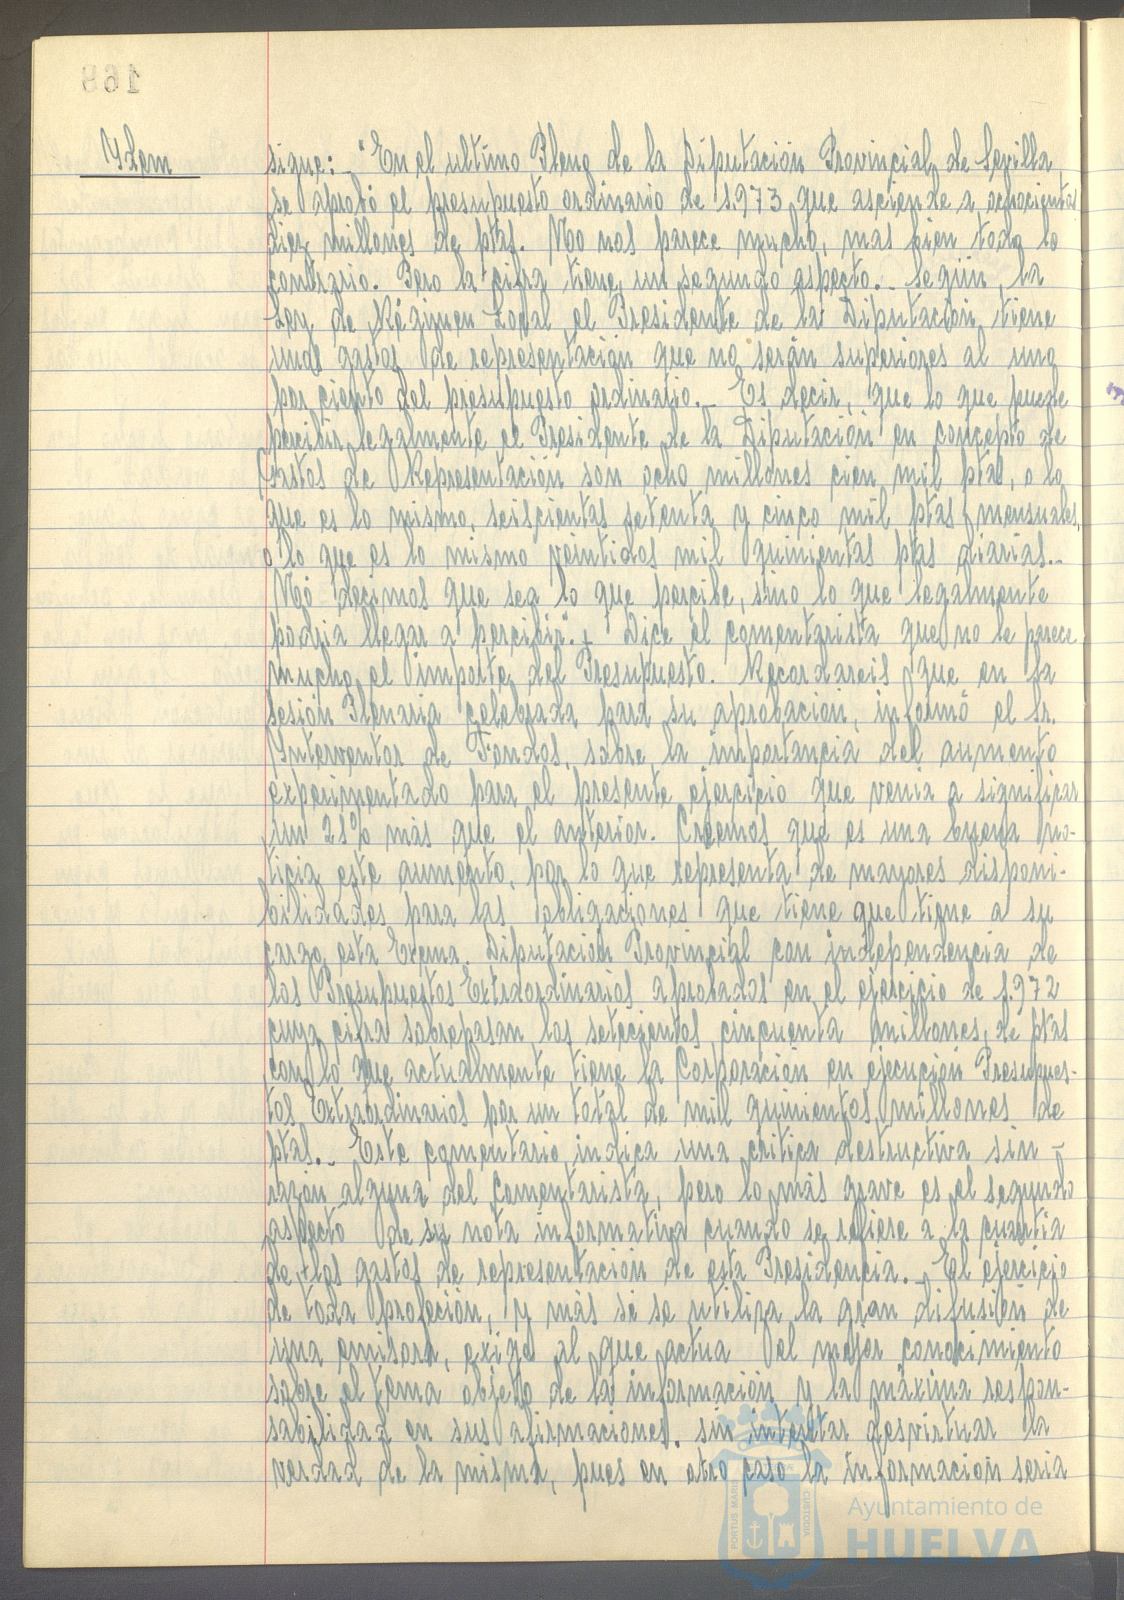 168
Ydem
sigue: "En el ultimo Pleno de la Diputación Provincial de Sevilla,
se aprobó el presupuesto ordinario de 1.973 que asciende a ochocientos
diez millones de ptas. No nos parece mucho, mas bien todo lo
contrario. Pero la cifra tiene un segundo aspecto.- Según, la
Ley de Régimen Local, el Presidente de la Diputación, tiene
unos gastos de representación que no serán superiores al uno
por ciento del presupuesto ordinario.- Es decir, que lo que puede
percibir legalmente el Presidente de la Diputación en concepto de
Gastos de Representación son ocho millones cien mil ptas, o lo
que es lo mismo, seiscientas setenta y cinco mil ptas mensuales,
o lo que es lo mismo veintidos mil quinientas ptas diarias.-
No decimos que sea lo que percibe, sino lo que legalmente
podria llegar a percibir".- Dice el comentarista que no le parece
mucho el importe del Presupuesto. Recordareis que en la
sesión Plenaria celebrada para su aprobación, informó el Sr.
Interventor de Fondos, sobre la importancia del aumento
experimentado para el presente ejercicio que venia a significar
un 28% más que el anterior. Creemos que es una buena no-
ticia este aumento, por lo que representa de mayores disponi-
bilidades para las obligaciones que tiene que tiene a su
cargo esta Excma. Diputación Provincial con independencia de
los Presupuestos Extraordinarios aprobados en el ejercicio de 1.972
cuya cifra sobrepasan los setecientos cincuenta millones, de ptas
con lo que actualmente tiene la Corporación en ejecución Presupues-
tos Extraordinarios por un total de mil quinientos millones de
ptas.- Este comentario indica una critica destructiva sin -
razón alguna del comentarista, pero lo más grave es el segundo
aspecto de su nota informativa cuando se refiere a la cuantia
de los gastos de representación de esta Presidencia.- El ejercicio
de toda profeción, y más si se utiliza la gran difusión de
una emisora, exige al que actua del mejor conocimiento
sobre el tema objeto de la información y la máxima respon-
sabilidad en sus afirmaciones, sin intentar desvirtuar la
verdad de la misma, pues en otro caso la información seria
PORTUS MARIS
CUSTODIA
Ayuntamiento de
HUELVA